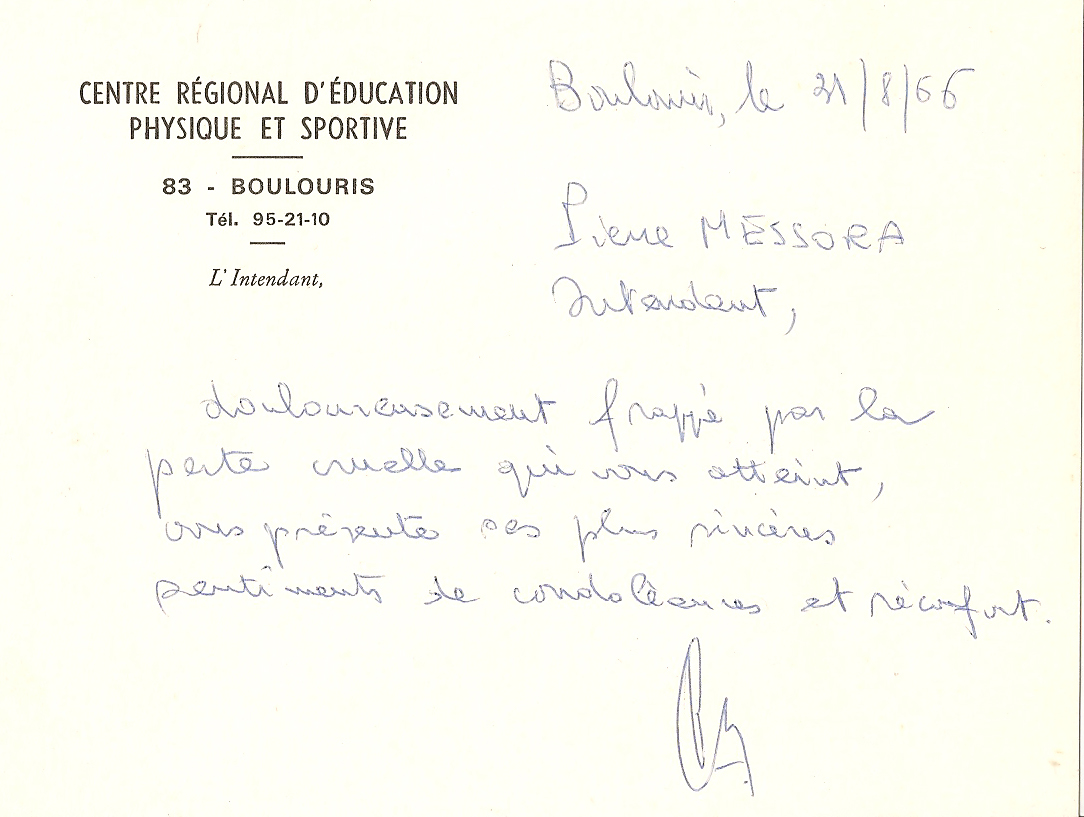 CENTRE RÉGIONAL D'ÉDUCATION
PHYSIQUE ET SPORTIVE
83 - BOULOURIS
Tél. 95-21-10
L'Intendant,
Boulouris, le 21/8/66
Pierre MESSORA
Intendant,
douloureusement frappé par la
perte cruelle qui vous atteint,
vous présente ses plus sincères
sentiments de condoléances et réconfort.